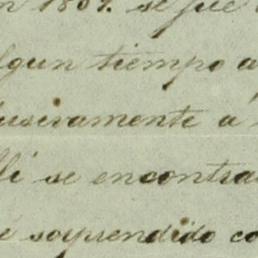 se fue
algun tiempo a
usivamente á
allí se encontra
sorprendido co